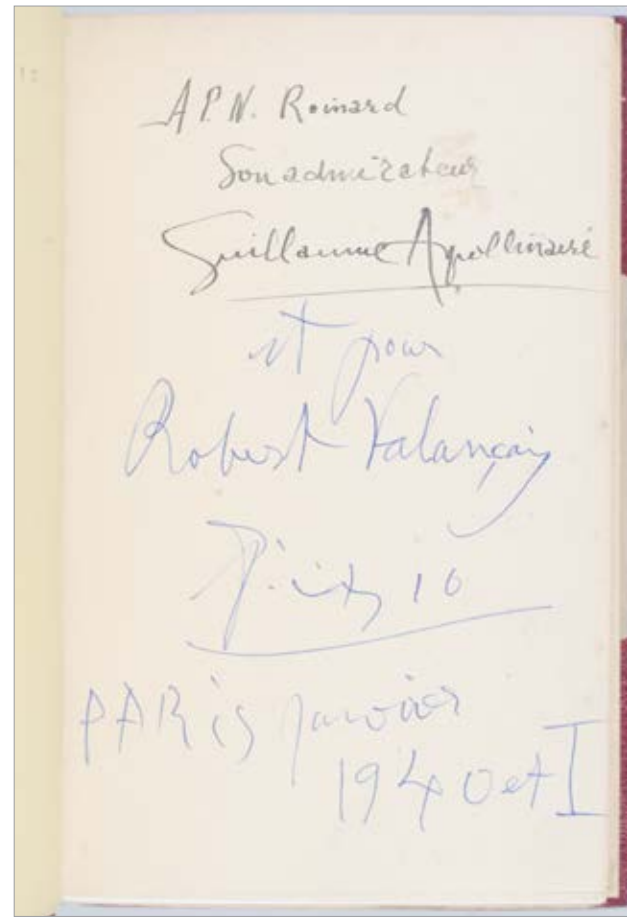 A P.N. Roinard
Son admirateur
Guillaume Apollinaire
et pour
Robert Valançay
Picasso
PARis janvier
1940 et I